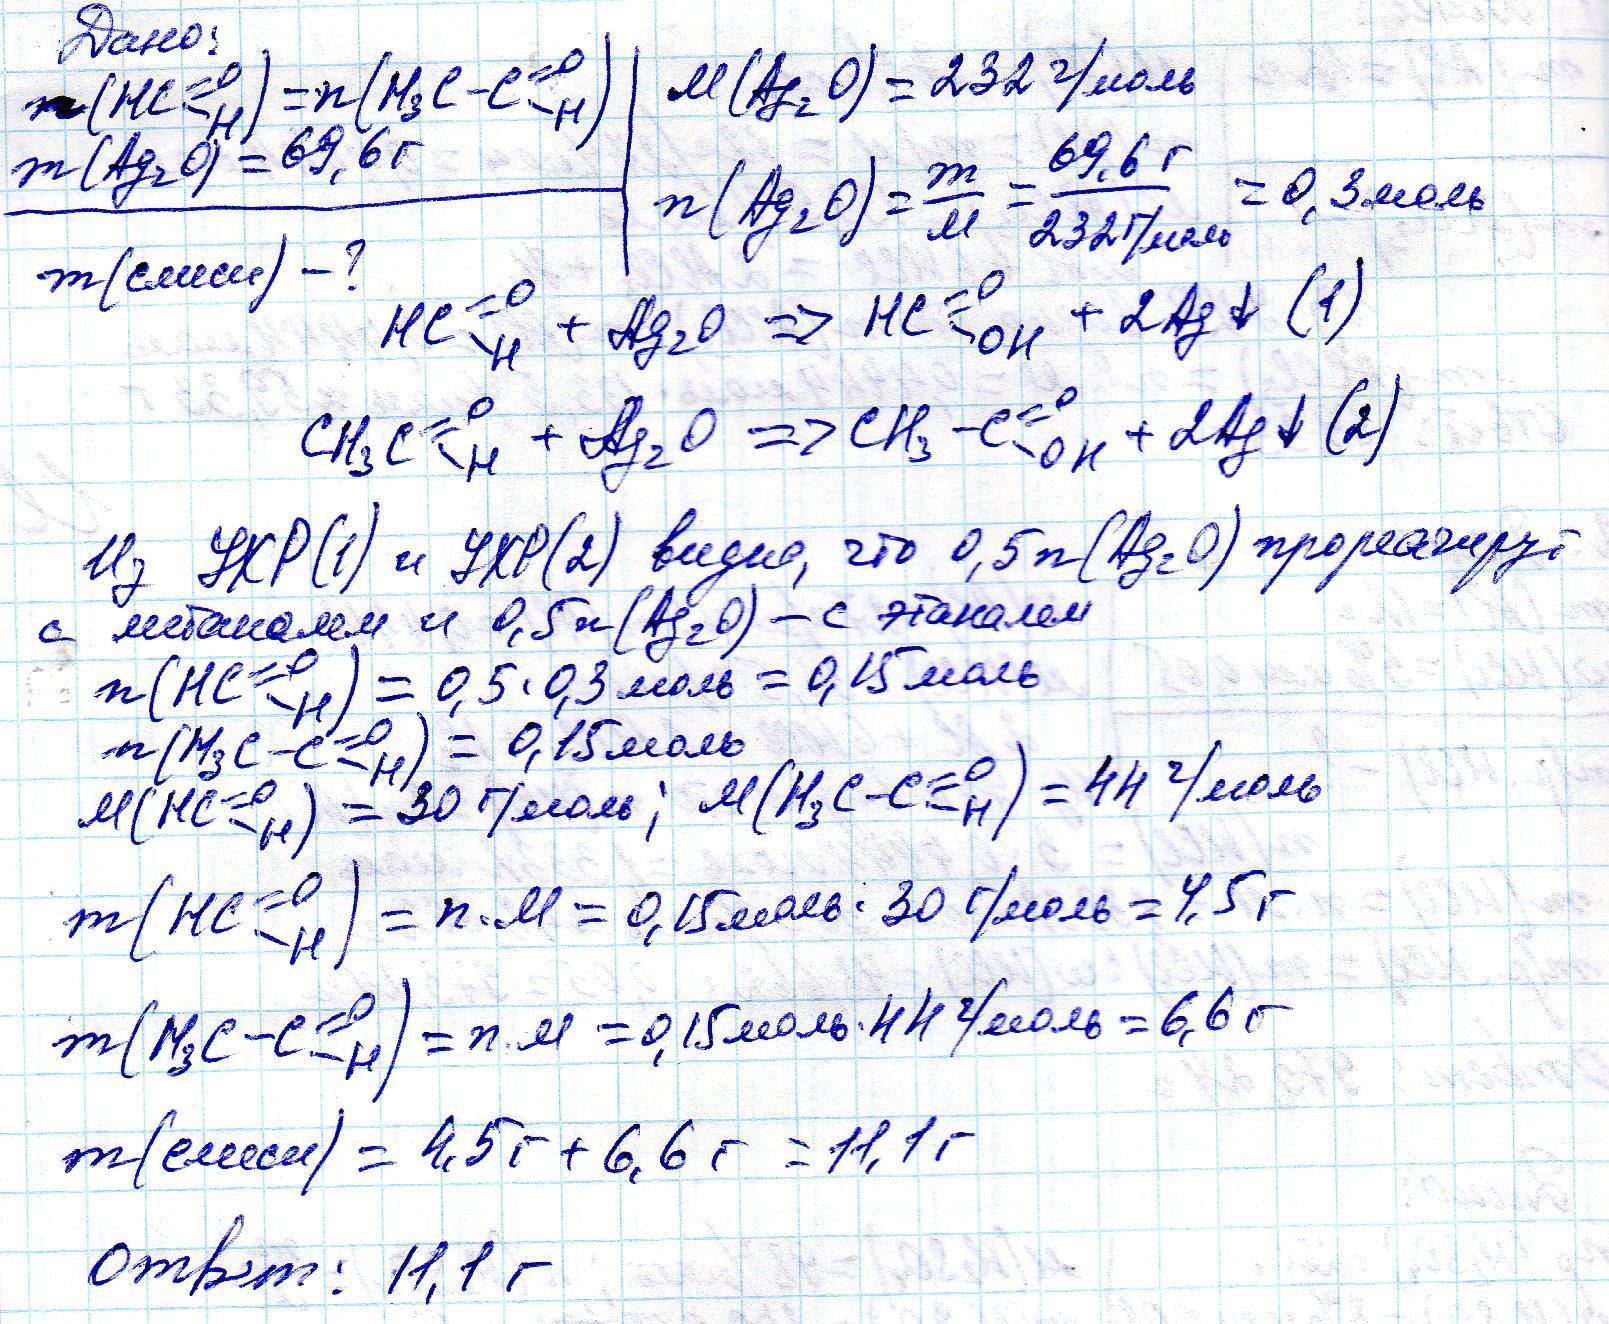 Дано:
n(HC=O-H) = n(H₃C-C=O-H)
m(Ag₂O) = 69,6 г
m(смеси) - ?
M(Ag₂O) = 232 г/моль
n(Ag₂O) = m/M = 69,6 г/232 г/моль = 0,3 моль
HC=O-H + Ag₂O => HC=O-OH + 2Ag↓ (1)
CH₃C=O-H + Ag₂O => CH₃-C=O-OH + 2Ag↓ (2)
Из УХР(1) и УХР(2) видно, что 0,5n(Ag₂O) прореагирует
с метаналем и 0,5n(Ag₂O) - с этаналем
n(HC=O-H) = 0,5·0,3 моль = 0,15 моль
n(H₃C-C=O-H) = 0,15 моль
M(HC=O-H) = 30 г/моль; M(H₃C-C=O-H) = 44 г/моль
m(HC=O-H) = n·M = 0,15 моль·30 г/моль = 4,5 г
m(H₃C-C=O-H) = n·M = 0,15 моль·44 г/моль = 6,6 г
m(смеси) = 4,5 г + 6,6 г = 11,1 г
Ответ: 11,1 г